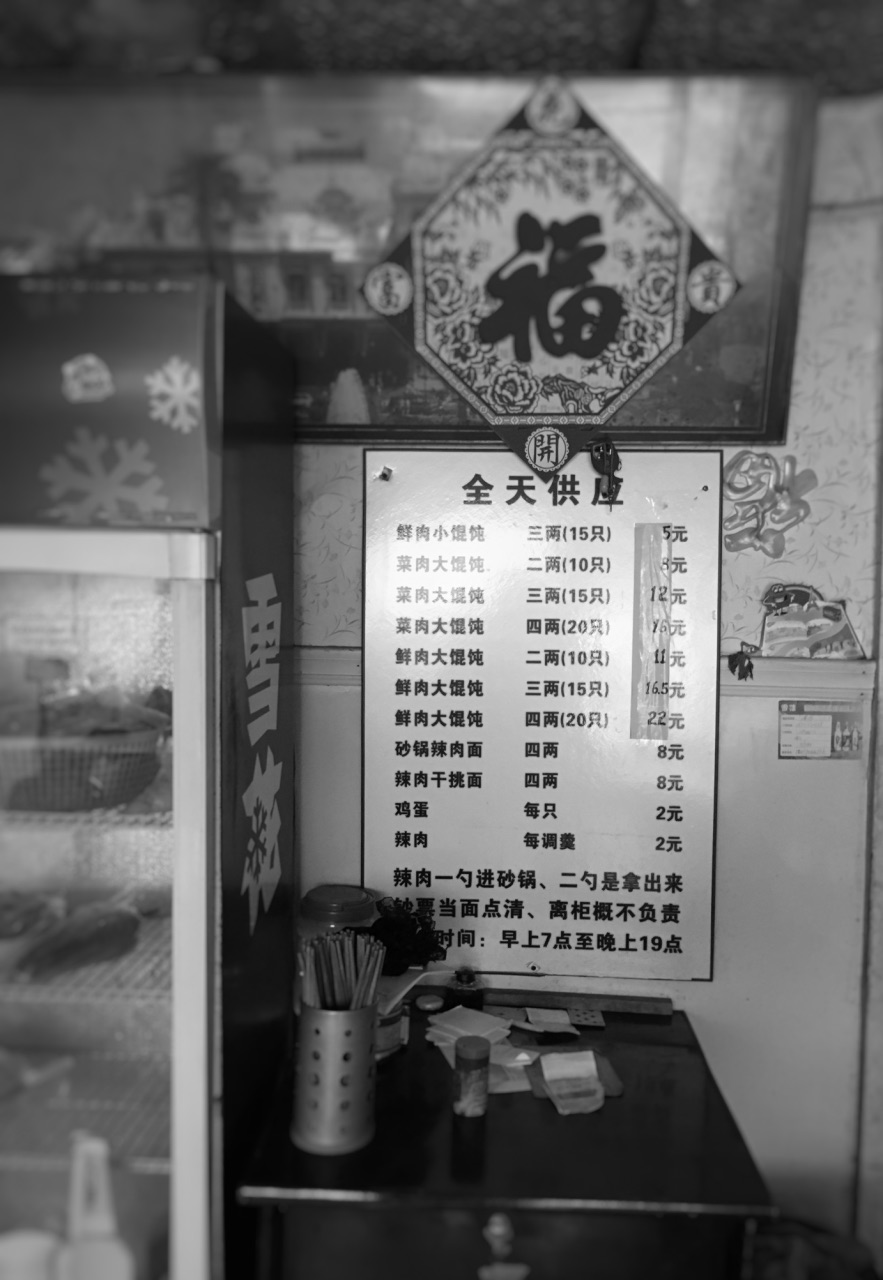 福
富
貴
開
全天供应
鲜肉小馄饨 三两(15只) 5元
菜肉大馄饨 二两(10只) 8元
菜肉大馄饨 三两(15只) 12元
菜肉大馄饨 四两(20只) 元
鲜肉大馄饨 二两(10只) 11元
鲜肉大馄饨 三两(15只) 16.5元
鲜肉大馄饨 四两(20只) 22元
砂锅辣肉面 四两 8元
辣肉干挑面 四两 8元
鸡蛋 每只 2元
辣肉 每调羹 2元
辣肉一勺进砂锅、二勺是拿出来
钞票当面点清、离柜概不负责
时间：早上7点至晚上19点
雪花